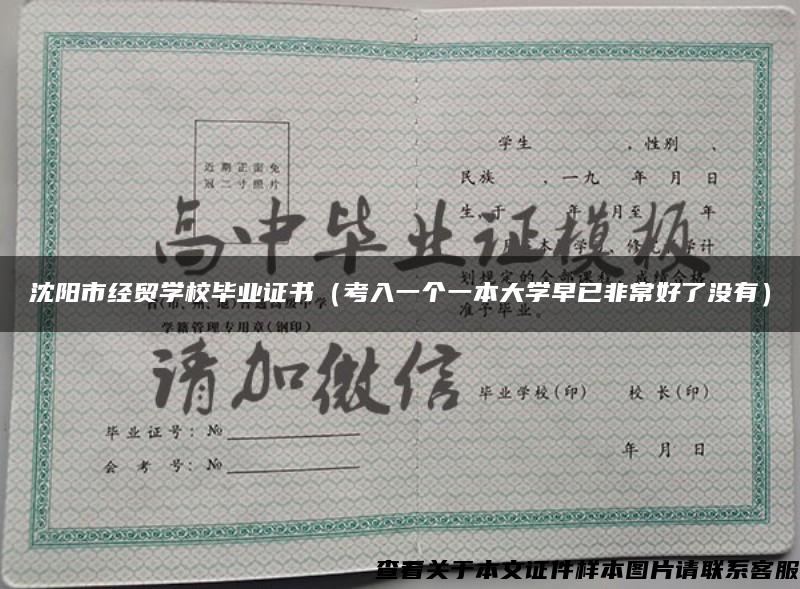 学生　　　　，性别　、
近期正面免
冠二寸照片
民族　　，一九　年　月　日
生，于　　年　月至　　年
高中毕业证模板
月　本　学　、修　学计
划规定的全部课程，成绩合格
沈阳市经贸学校毕业证书（考入一个一本大学早已非常好了没有）
准予毕业。
学籍管理专用章(钢印)
请加微信
毕业学校(印)　校 长(印)
毕业证号：№
年　月　日
会　考　号：№
查看关于本文证件样本图片请联系客服